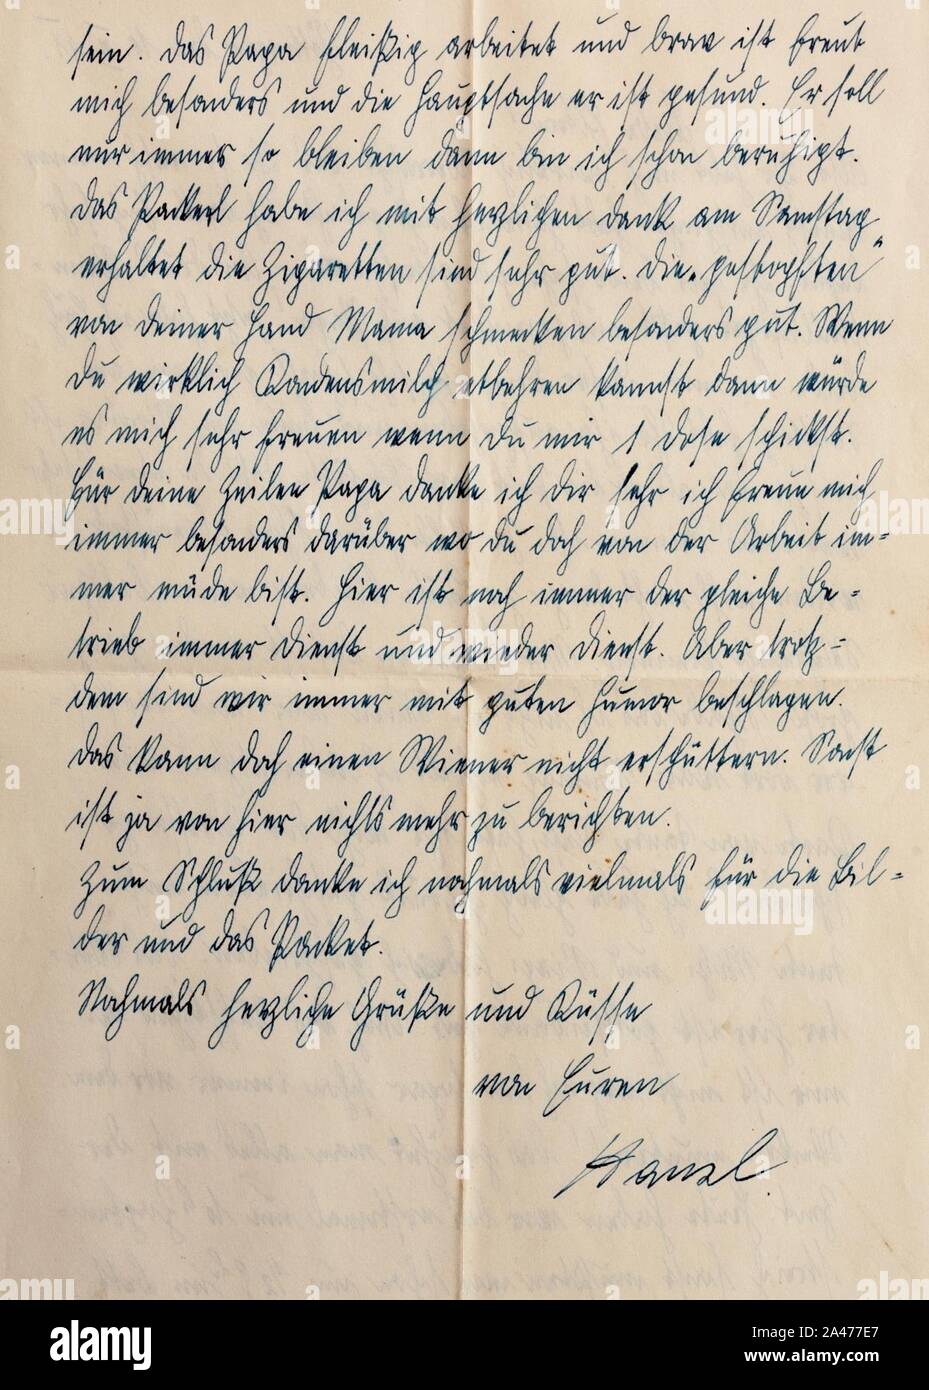 sein. Das Papa fleißig arbeitet und brav ist freut
mich besonders und die Hauptsache er ist gesund. Er soll
nur immer so bleiben dann bin ich schon beruhigt.
Das Packerl habe ich mit herzlichen Dank am Samstag
erhaltet die Zigaretten sind sehr gut. Die „gestopften"
von deiner Hand Mama schmecken besonders gut. Wenn
du wirklich Kondensmilch etbehren kannst dann würde
es mich sehr freuen wenn du mir 1 Dose schickst.
Für deine Zeilen Papa danke ich dir sehr ich freue mich
immer besonders darüber wo du doch von der Arbeit im=
mer müde bist. Hier ist noch immer der gleiche Be=
trieb immer Dienst und wieder Dienst. Aber trotz=
dem sind wir immer mit guten Humor beschlagen.
Das kann doch einen Wiener nicht erschüttern. Sonst
ist ja von hier nichts mehr zu berichten.
Zum Schluß danke ich nochmals vielmals für die Bil=
der und das Packet.
Nochmals herzliche Grüße und Küsse
von Euren
Hansl.
alamy
Image ID: 2A477E7
www.alamy.com